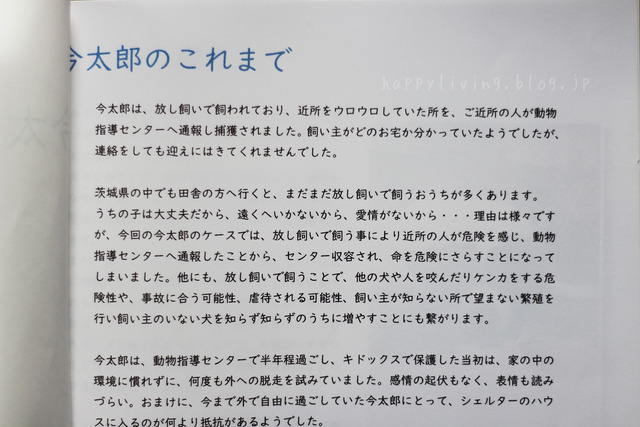 今太郎のこれまで
happyliving.blog.jp
今太郎は、放し飼いで飼われており、近所をウロウロしていた所を、ご近所の人が動物
指導センターへ通報し捕獲されました。飼い主がどのお宅か分かっていたようでしたが、
連絡をしても迎えにはきてくれませんでした。
茨城県の中でも田舎の方へ行くと、まだまだ放し飼いで飼うおうちが多くあります。
うちの子は大丈夫だから、遠くへいかないから、愛情がないから・・・理由は様々です
が、今回の今太郎のケースでは、放し飼いで飼う事により近所の人が危険を感じ、動物
指導センターへ通報したことから、センター収容され、命を危険にさらすことになって
しまいました。他にも、放し飼いで飼うことで、他の犬や人を咬んだりケンカをする危
険性や、事故に合う可能性、虐待される可能性、飼い主が知らない所で望まない繁殖を
行い飼い主のいない犬を知らず知らずのうちに増やすことにも繋がります。
今太郎は、動物指導センターで半年程過ごし、キドックスで保護した当初は、家の中の
環境に慣れずに、何度も外への脱走を試みていました。感情の起伏もなく、表情も読み
づらい。おまけに、今まで外で自由に過ごしていた今太郎にとって、シェルターのハウ
スに入るのが何より抵抗があるようでした。